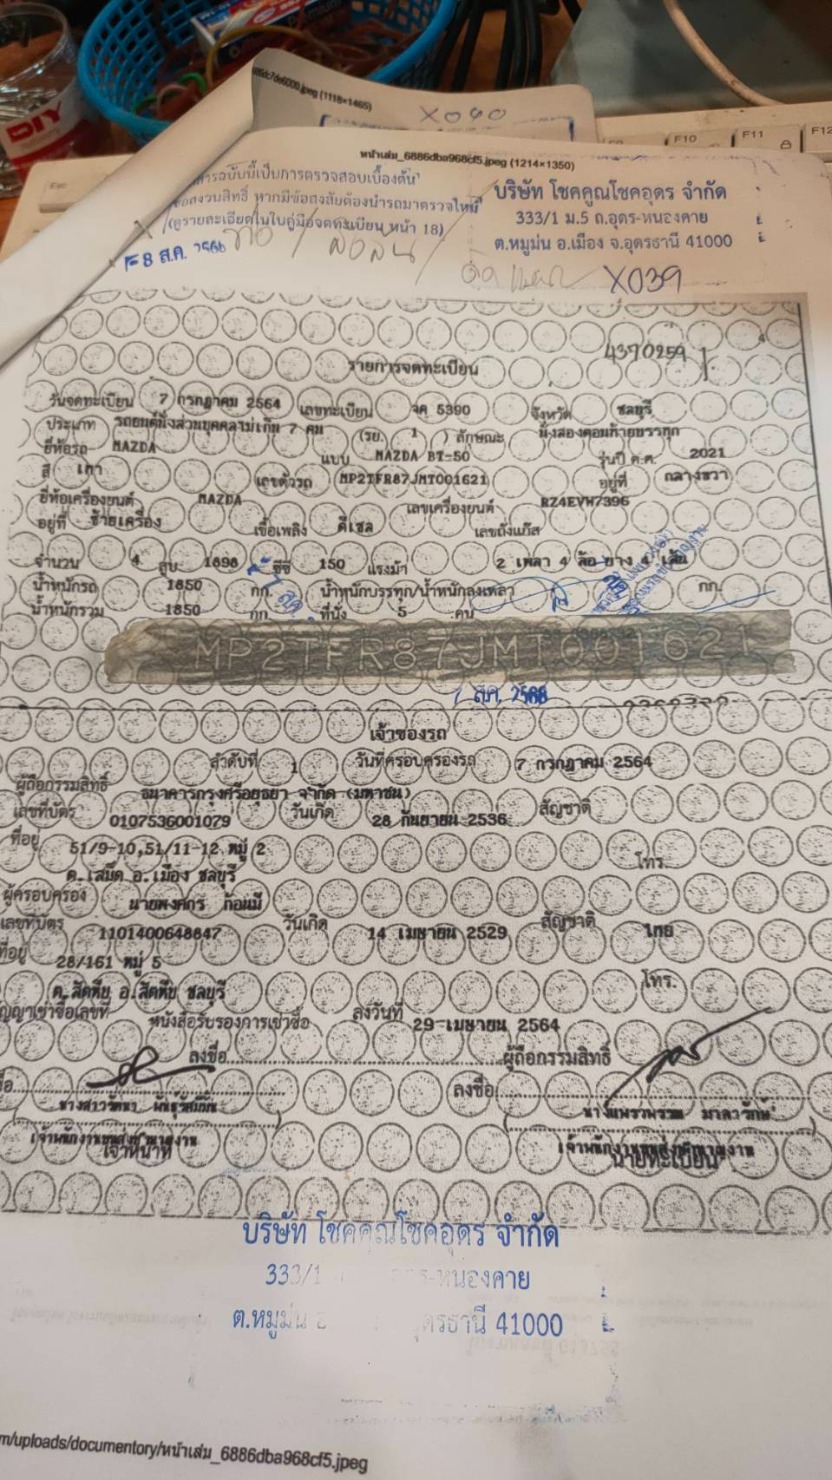 6886dc7de6000.jpeg (1118×1465)
X040
หน้าเล่ม_6886dba968cf5.jpeg (1214×1350)
F10 F11 F12
Esc
DIY
ฉบับนี้เป็นการตรวจสอบเบื้องต้น
ขอสงวนสิทธิ์ หากมีข้อสงสัยต้องนำรถมาตรวจใหม่
(ดูรายละเอียดในใบคู่มือจดทะเบียน หน้า 18)
8 ส.ค. 2568
บริษัท โชคคูณโชคอุดร จำกัด
333/1 ม.5 ถ.อุดร-หนองคาย
ต.หมูม่น อ.เมือง จ.อุดรธานี 41000
X039
4370259
รายการจดทะเบียน
วันจดทะเบียน 7 กรกฎาคม 2564 เลขทะเบียน จค 5390 จังหวัด ชลบุรี
ประเภท รถยนต์นั่งส่วนบุคคลไม่เกิน 7 คน (รย. 1 ) ลักษณะ นั่งสองตอนท้ายบรรทุก
ยี่ห้อรถ MAZDA แบบ MAZDA BT-50 รุ่นปี ค.ศ. 2021
สี เทา เลขตัวรถ MP2TFR87JMT001621 อยู่ที่ กลางขวา
ยี่ห้อเครื่องยนต์ MAZDA เลขเครื่องยนต์ RZ4EVW7396
อยู่ที่ ซ้ายเครื่อง เชื้อเพลิง ดีเซล เลขถังแก๊ส
จำนวน 4 สูบ 1898 ซีซี 150 แรงม้า 2 เพลา 4 ล้อ ยาง 4 เส้น
น้ำหนักรถ 1850 กก. น้ำหนักบรรทุก/น้ำหนักลงเพลา กก.
น้ำหนักรวม 1850 กก. ที่นั่ง 5 คน
MP2TFR87JMT001621
7 ส.ค. 2568
เจ้าของรถ
ลำดับที่ 1 วันที่ครอบครองรถ 7 กรกฎาคม 2564
ผู้ถือกรรมสิทธิ์ ธนาคารกรุงศรีอยุธยา จำกัด (มหาชน)
เลขที่บัตร 0107536001079 วันเกิด 28 กันยายน 2536 สัญชาติ
ที่อยู่ 51/9-10,51/11-12 หมู่ 2
ต.เสม็ด อ.เมือง ชลบุรี โทร.
ผู้ครอบครอง นายพงศกร ก้อนมี
เลขที่บัตร 1101400648847 วันเกิด 14 เมษายน 2529 สัญชาติ ไทย
ที่อยู่ 28/161 หมู่ 5
ต.สัตหีบ อ.สัตหีบ ชลบุรี โทร.
สัญญาเช่าซื้อเลขที่ หนังสือรับรองการเช่าซื้อ ลงวันที่ 29 เมษายน 2564
ลงชื่อ ผู้ถือกรรมสิทธิ์
ลงชื่อ
เจ้าหน้าที่ นายทะเบียน
บริษัท โชคคูณโชคอุดร จำกัด
333/1 -หนองคาย
ต.หมูม่น อุดรธานี 41000
m/uploads/documentory/หน้าเล่ม_6886dba968cf5.jpeg